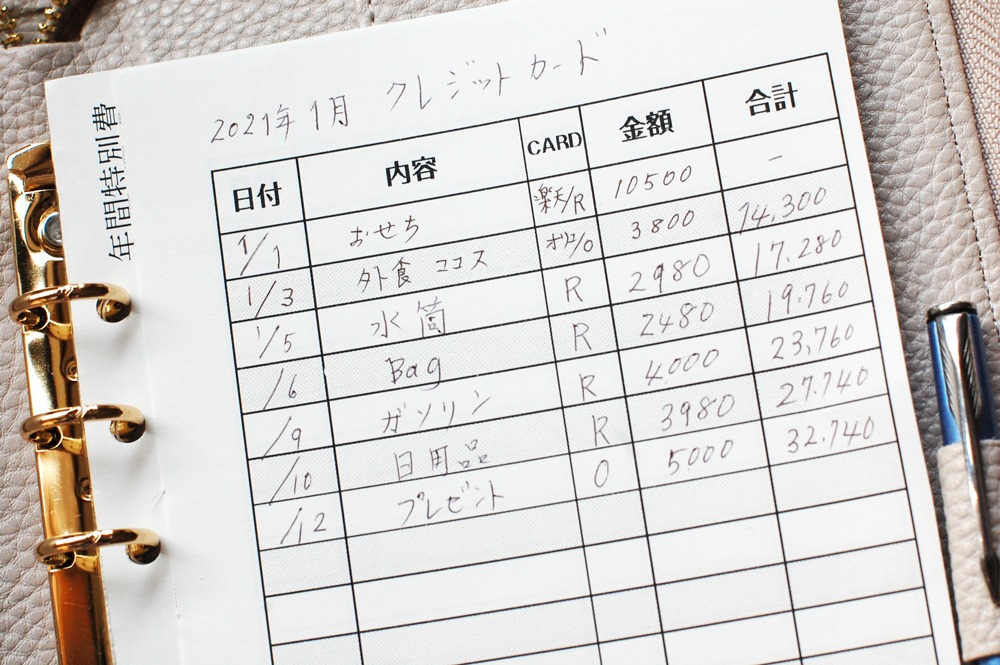 年間特別費
2021年 1月 クレジットカード
日付 内容 CARD 金額 合計
1/1 おせち 楽天/R 10500 -
1/3 外食 ココス オリコ/O 3800 14,300
1/5 水筒 R 2980 17.280
/6 Bag R 2480 19.760
/9 ガソリン R 4.000 23,760
/10 日用品 R 3980 27.740
/12 プレゼント O 5000 32.740